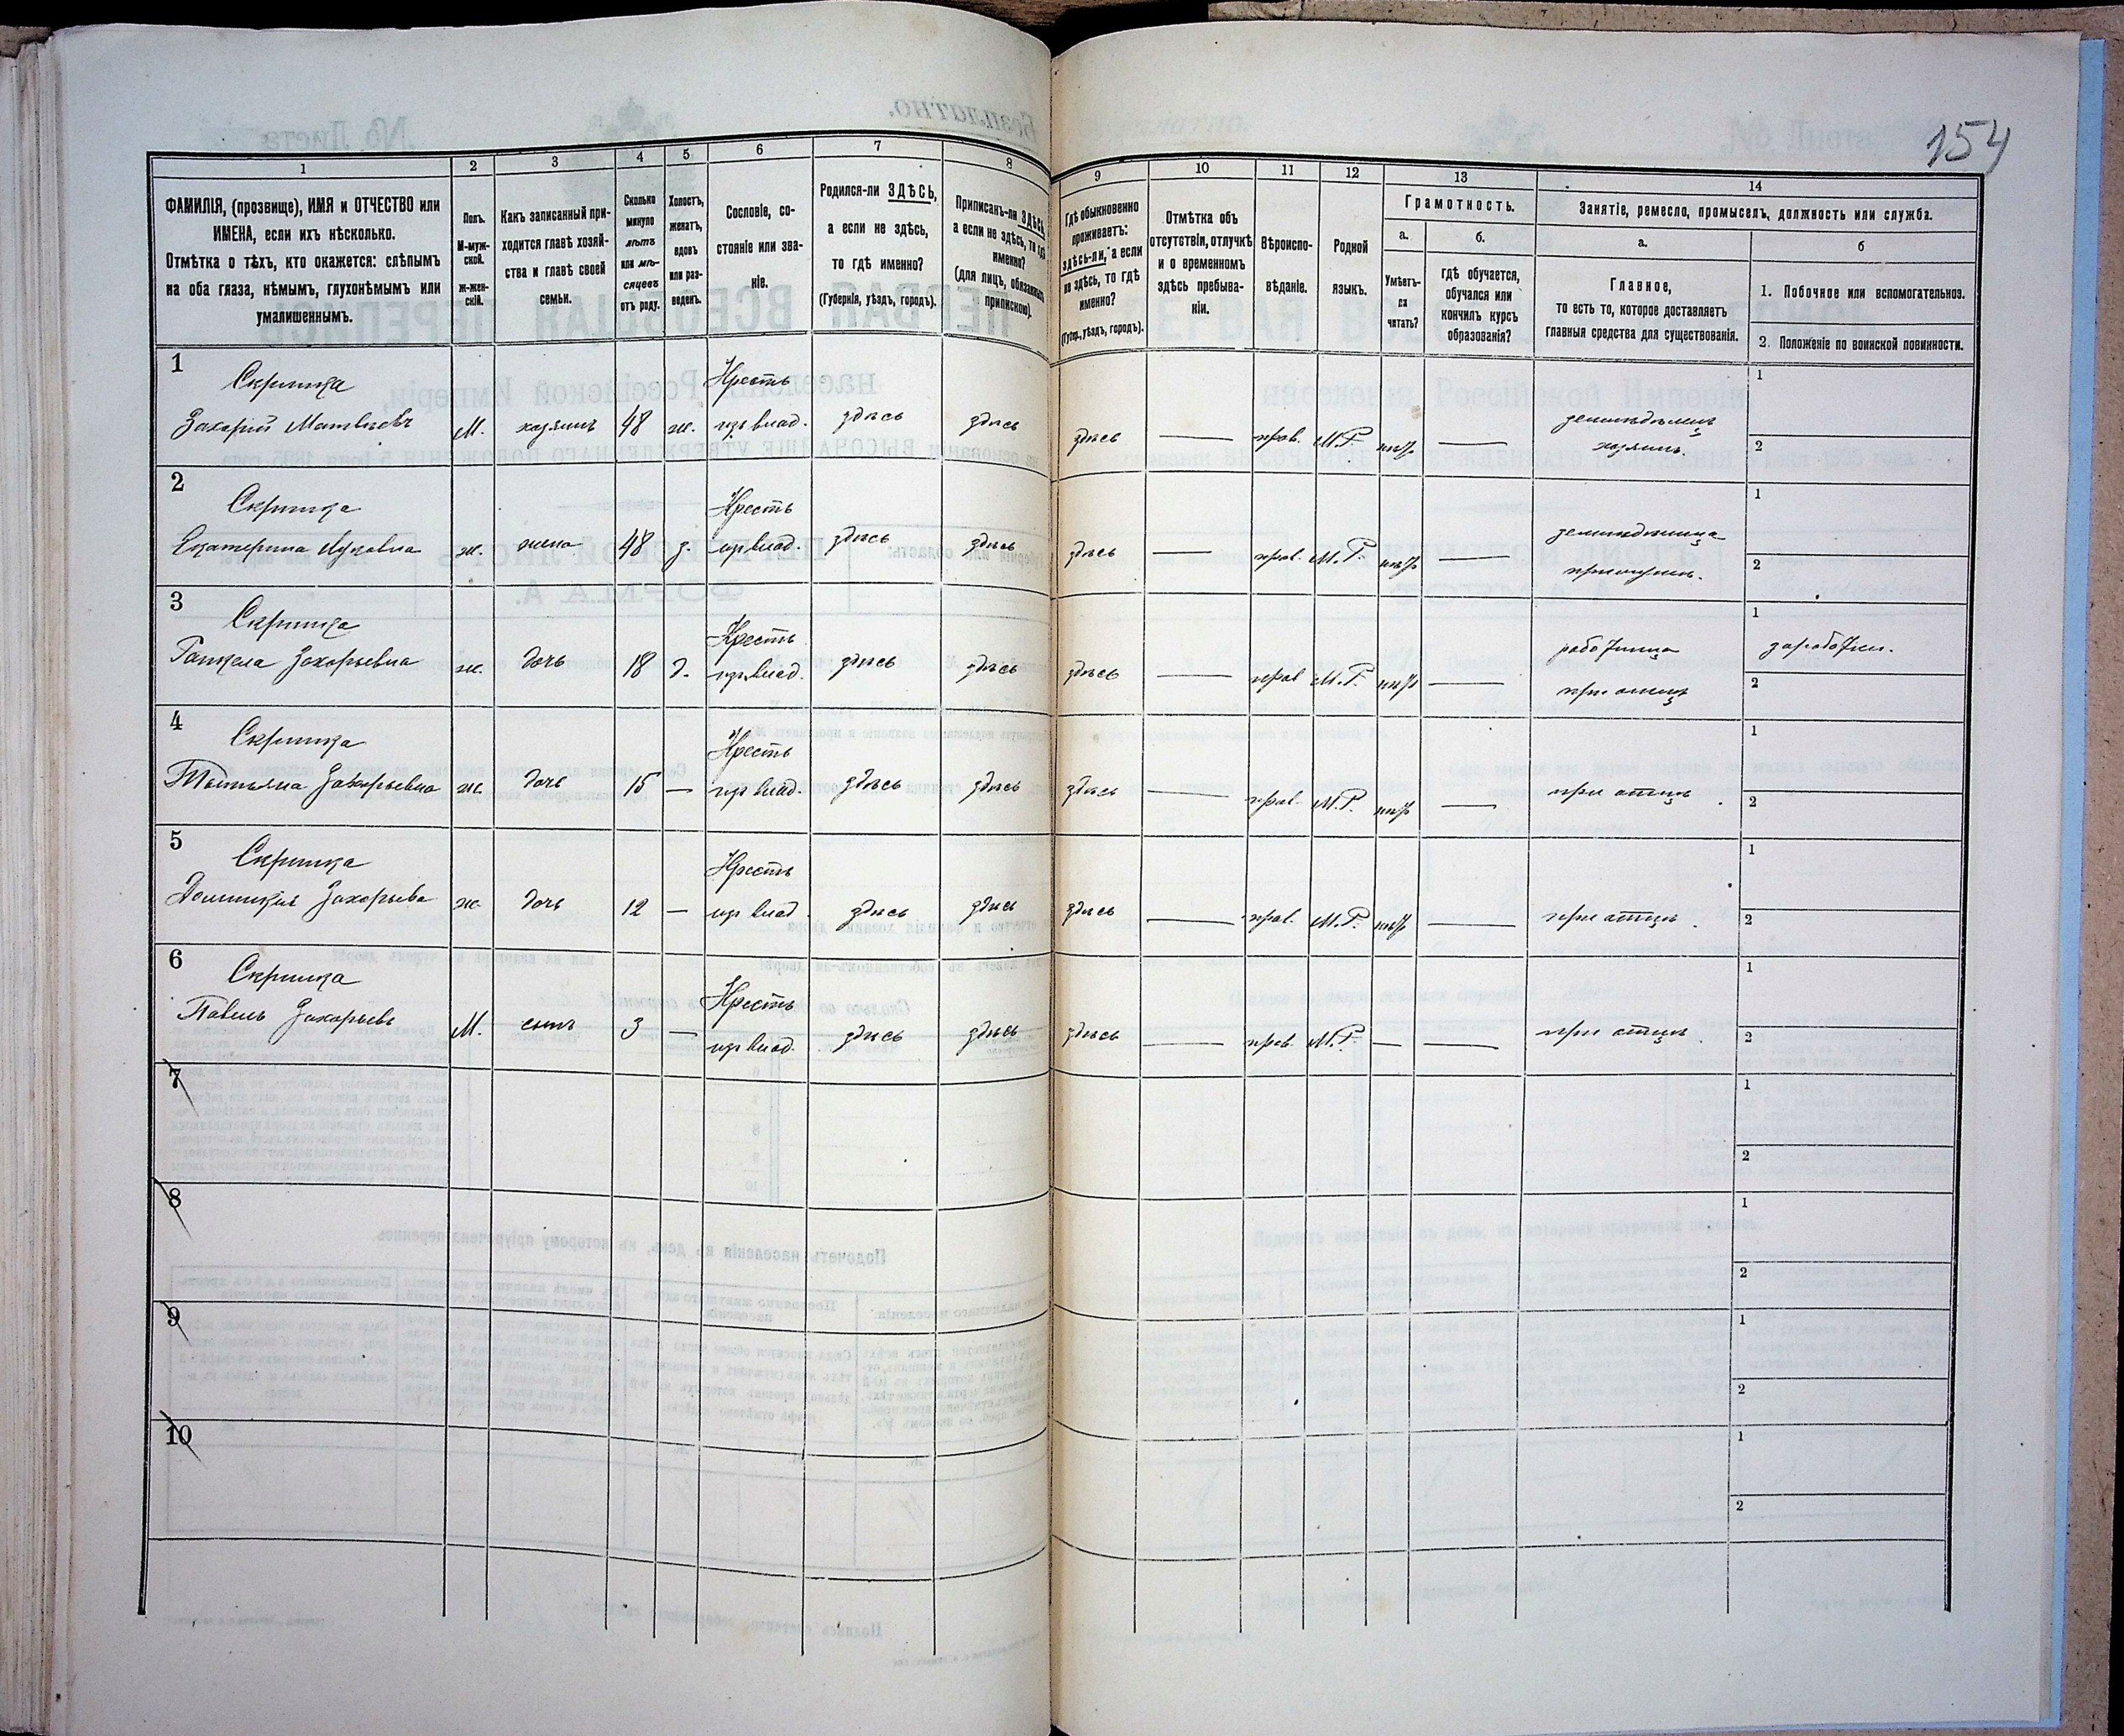 154
1
2
3
4
5
6
7
8
9
10
11
12
13
14
ФАМИЛІЯ, (прозвище), ИМЯ и ОТЧЕСТВО или
ИМЕНА, если ихъ нѣсколько.
Отмѣтка о тѣхъ, кто окажется: слѣпымъ
на оба глаза, нѣмымъ, глухонѣмымъ или
умалишеннымъ.
Полъ.
М-муж-
ской.
ж-жен-
скій.
Какъ записанный при-
ходится главѣ хозяй-
ства и главѣ своей
семьи.
Сколько
минуло
лѣтъ
или мѣ-
сяцевъ
отъ роду.
Холостъ,
женатъ,
вдовъ
или раз-
веденъ.
Сословіе, со-
стояніе или зва-
ніе.
Родился-ли ЗДѢСЬ,
а если не здѣсь,
то гдѣ именно?
(Губернія, уѣздъ, городъ).
Приписанъ-ли ЗДѢСЬ,
а если не здѣсь, то гдѣ
именно?
(для лицъ, обязанныхъ
припискою).
Гдѣ обыкновенно
проживаетъ:
здѣсь-ли, а если
не здѣсь, то гдѣ
именно?
(Губер., уѣздъ, городъ).
Отмѣтка объ
отсутствіи, отлучкѣ
и о временномъ
здѣсь пребыва-
ніи.
Вѣроиспо-
вѣданіе.
Родной
языкъ.
Грамотность.
а.
Умѣетъ-
ли
читать?
б.
гдѣ обучается,
обучался или
кончилъ курсъ
образованія?
Занятіе, ремесло, промыселъ, должность или служба.
а.
Главное,
то есть то, которое доставляетъ
главныя средства для существованія.
б
1. Побочное или вспомогательное.
2. Положеніе по воинской повинности.
1
Скрипка
Захарій Матвѣевъ
М.
хозяинъ
48
ж.
Крестъ
из влад.
здѣсь
здѣсь
здѣсь
прав.
М.Р.
нѣтъ
земледѣлецъ
хозяинъ.
1
2
2
Скрипка
Екатерина
ж.
жена
48
з.
Крестъ
из влад.
здѣсь
здѣсь
здѣсь
прав.
М.Р.
нѣтъ
1
2
3
Скрипка
Захорьевна
ж.
дочь
18
д.
Крестъ
из влад.
здѣсь
здѣсь
здѣсь
прав
М.Р.
нѣтъ
работница
при отцѣ
1
заработки.
2
4
Скрипка
Татьяна Захорьевна
ж.
дочь
15
Крестъ
из влад.
здѣсь
здѣсь
здѣсь
прав.
М.Р.
нѣтъ
при отцѣ
1
2
5
Скрипка
Захорьева
ж.
дочь
12
Крестъ
из влад
здѣсь
здѣсь
здѣсь
прав.
М.Р.
нѣтъ
при отцѣ
1
2
6
Скрипка
Павелъ Захорьевъ
М.
сынъ
3
Крестъ
из влад.
здѣсь
здѣсь
здѣсь
прав.
М.Р.
при отцѣ
1
2
7
1
2
8
1
2
9
1
2
10
1
2